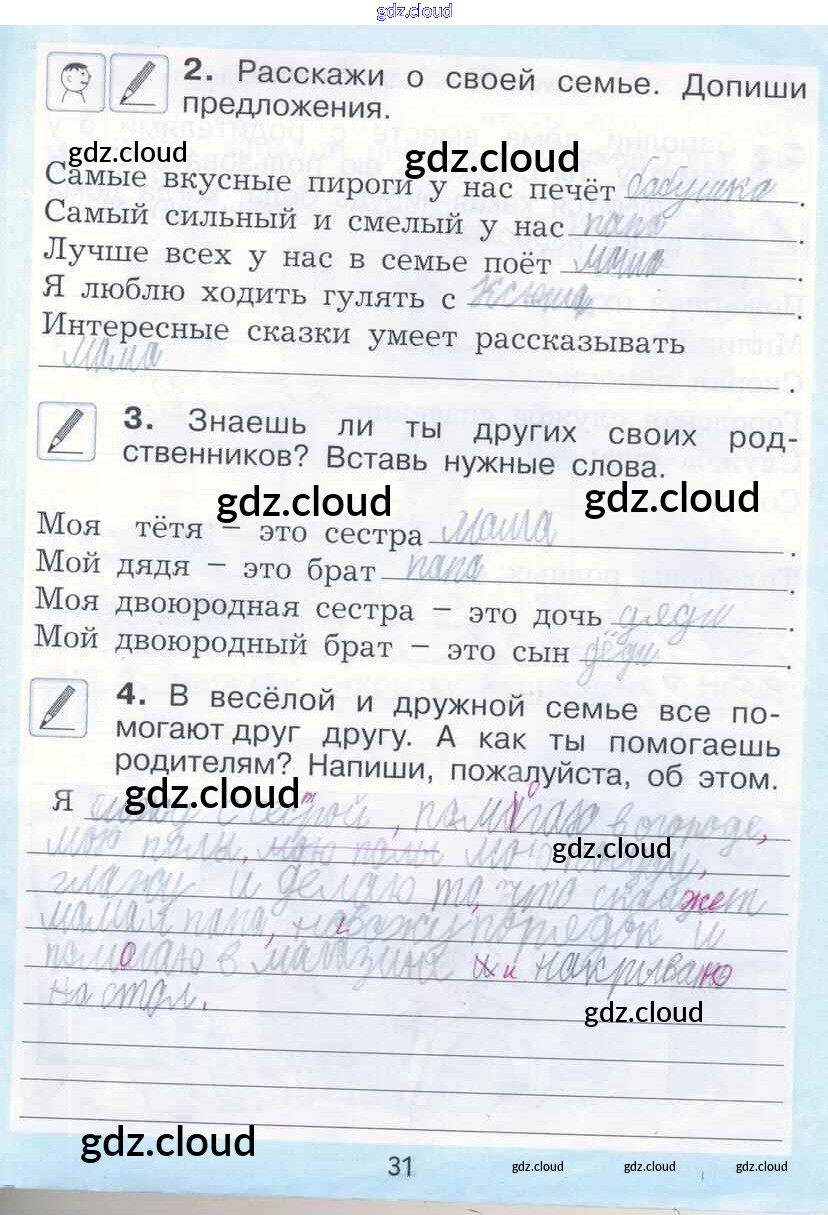 gdz.cloud
2. Расскажи о своей семье. Допиши
предложения.
gdz.cloud gdz.cloud
Самые вкусные пироги у нас печёт бабушка.
Самый сильный и смелый у нас папа.
Лучше всех у нас в семье поёт мама.
Я люблю ходить гулять с Ксюша.
Интересные сказки умеет рассказывать
мама.
3. Знаешь ли ты других своих род-
ственников? Вставь нужные слова.
gdz.cloud gdz.cloud
Моя тётя – это сестра мама.
Мой дядя – это брат папа.
Моя двоюродная сестра – это дочь дяди.
Мой двоюродный брат – это сын дёди.
4. В весёлой и дружной семье все по-
могают друг другу. А как ты помогаешь
родителям? Напиши, пожалуйста, об этом.
gdz.cloud
Я сижу с сестрой, помогаю в огороде,
мою полы, мою полы мою посуду,
gdz.cloud
глажу и делаю то, что скажет
мама и папа, навожу порядок и
помогаю в магазине и накрываю
на стол.
gdz.cloud
gdz.cloud
31
gdz.cloud gdz.cloud gdz.cloud